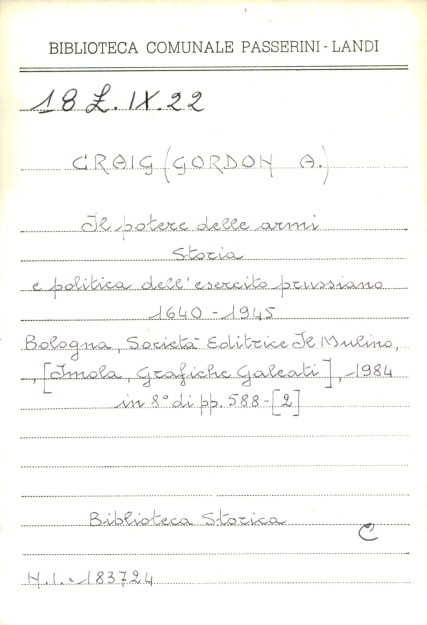 BIBLIOTECA COMUNALE PASSERINI - LANDI
18 L. IX. 22
CRAIG (GORDON A.)
Il potere delle armi
Storia
e politica dell'esercito prussiano
1640 - 1945
Bologna, Società Editrice Il Mulino,
, [Imola, Grafiche Galeati], 1984
in 8° di pp. 588-[2]
Biblioteca Storica
C
N.I. = 183724